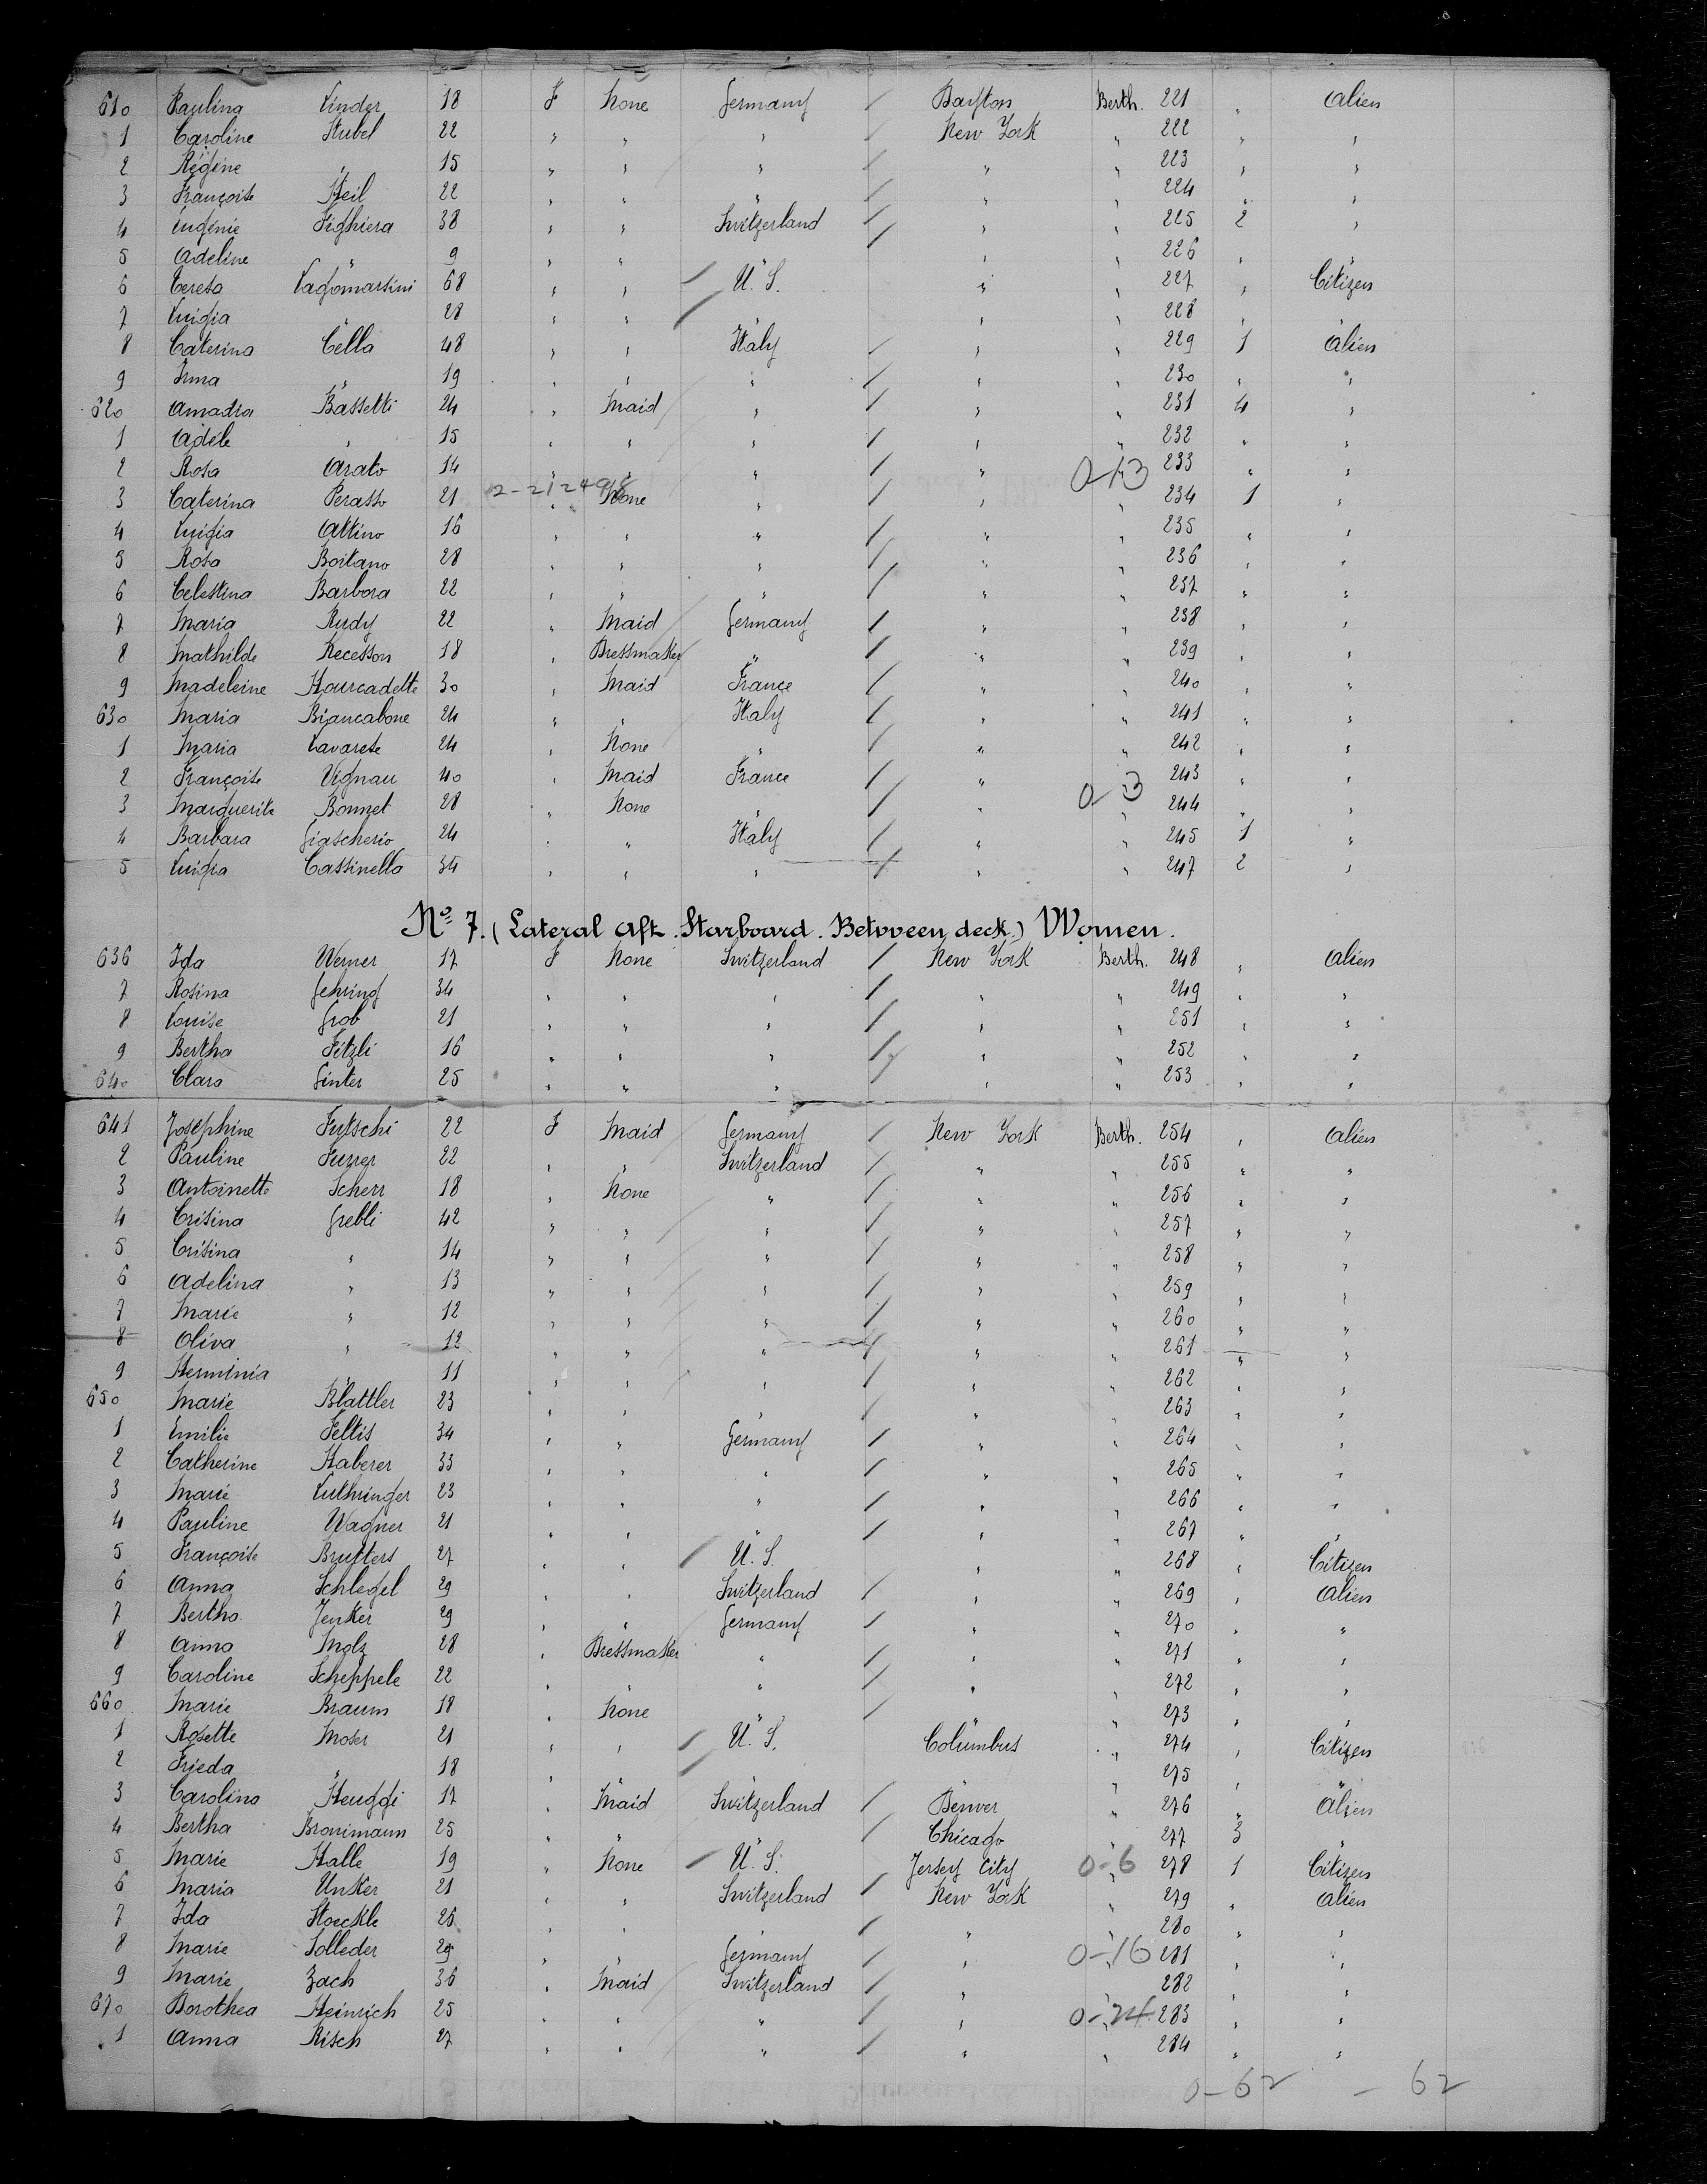 610 Paulina Linder 18 F None Germany / Dayton Berth. 221 " Alien
1 Caroline Stubel 22 " " " / New York " 222 " "
2 Régine " 15 " " " / " " 223 " "
3 Françoise Heil 22 " " " / " " 224 " "
4 Eugénie Fighiera 38 " " Switzerland / " " 225 2 "
5 Adeline " 9 " " " / " " 226 " "
6 Teresa Lagomarsini 68 " " / U. S. " " 227 " Citizen
7 Luigia " 28 " " / " " " 228 " "
8 Caterina Cella 48 " " Italy / " " 229 1 Alien
9 Irma " 19 " " " / " " 230 " "
620 Amadea Bassetti 24 " Maid " / " " 231 4 "
1 Adèle " 15 " " " / " " 232 " "
2 Rosa Arato 14 " " " / " " 233 " "
3 Caterina Perasso 21 " None " / " " 234 1 "
4 Luigia Attino 16 " " " / " " 235 " "
5 Rosa Boitano 28 " " " / " " 236 " "
6 Celestina Barbora 22 " " " / " " 237 " "
7 Maria Rudy 22 " Maid Germany / " " 238 " "
8 Mathilde Recesson 18 " Dressmaker " / " " 239 " "
9 Madeleine Hourcadette 30 " Maid France / " " 240 " "
630 Maria Biancabone 24 " " Italy / " " 241 " "
1 Maria Lavarete 24 " None " / " " 242 " "
2 Françoise Vignau 40 " Maid France / " " 243 " "
3 Marguerite Bonnet 28 " None " / " " 244 " "
4 Barbara Giascherio 24 " " Italy / " " 245 1 "
5 Luigia Cassinello 34 " " " / " " 247 2 "
No 7. (Lateral Aft. Starboard. Between deck.) Women.
636 Ida Werner 17 F None Switzerland / New York Berth. 248 " Alien
7 Rosina Gehring 34 " " " / " " 249 " "
8 Louise Grob 21 " " " / " " 251 " "
9 Bertha Fitzli 16 " " " / " " 252 " "
640 Clara Ginter 25 " " " " " 253 " "
641 Joséphine Futschi 22 F Maid Germany / New York Berth. 254 " Alien
2 Pauline Furrer 22 " " Switzerland / " " 255 " "
3 Antoinette Scherr 18 " None " / " " 256 " "
4 Crisina Grebli 42 " " " / " " 257 " "
5 Crisina " 14 " " " / " " 258 " "
6 Adelina " 13 " " " / " " 259 " "
7 Marie " 12 " " " / " " 260 " "
8 Oliva " 12 " " " / " " 261 " "
9 Herminia " 11 " " " / " " 262 " "
650 Marie Blattler 23 " " " / " " 263 " "
1 Emilie Feltis 34 " " Germany / " " 264 " "
2 Catherine Haberer 33 " " " / " " 265 " "
3 Marie Luthringer 23 " " " / " " 266 " "
4 Pauline Wagner 21 " " " / " " 267 " "
5 Françoise Brutters 27 " " / U. S. " " 268 " Citizen
6 Anna Schlegel 29 " " Switzerland / " " 269 " Alien
7 Bertha Jenker 29 " " Germany / " " 270 " "
8 Anna Molz 28 " Dressmaker " / " " 271 " "
9 Caroline Scheppele 22 " " " / " " 272 " "
660 Marie Braum 18 " None " / " " 273 " "
1 Rosette Moser 21 " " / U. S. Columbus " 274 " Citizen
2 Frieda " 18 " " / " " " 275 " "
3 Carolina Heuggi 17 " Maid Switzerland / Denver " 276 " Alien
4 Bertha Bronimann 25 " " " / Chicago " 277 3 "
5 Marie Halle 19 " None / U. S. Jersey City 0-6 278 1 Citizen
6 Maria Unker 21 " " Switzerland / New York " 279 " Alien
7 Ida Stoeckle 26 " " " / " " 280 " "
8 Marie Solleder 29 " " Germany / " 0-16 281 " "
9 Marie Zach 36 " Maid Switzerland / " " 282 " "
670 Dorothea Heinrich 25 " " " / " 0-24 283 " "
1 Anna Risch 27 " " " / " " 284 " "
0-62 - 62